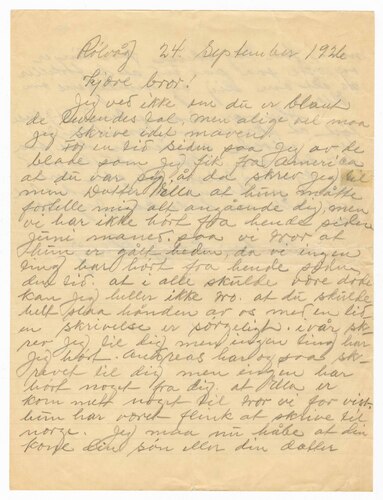 Rölvåg 24 September 1926
Kjære bror!
Jeg ved ikke om du er blant
de levendes tal, men alige vel maa
jeg skrive idet maven
For en tid siden saa jeg av de
blade som jeg fik fra America
at du var syg, å da skrev jeg til
min Datter Ella at hun måtte
fortelle mig alt angaaende dig, men
vi har ikke hört fra hende siden
Juni maned. saa vi tror at
hun er gått heden, da vi ingen
ting har hört fra hende siden
den tid. at i alle skulde være döde
kan jeg heller ikke tro. at du skulde
helt slaa hånden av os med en lit
en skrivelse er sorgeligt. i vår sk
rev jeg til dig men ingen ting har
jeg hört. Andreas har og saa sk
revet til dig men ingen har
hört noget fra dig. at Ella er
kom mett noget til tror vi for vist.
hun har været flink at skrive til
norge. Jeg maa nu håbe at din
kone din sön eller din datter